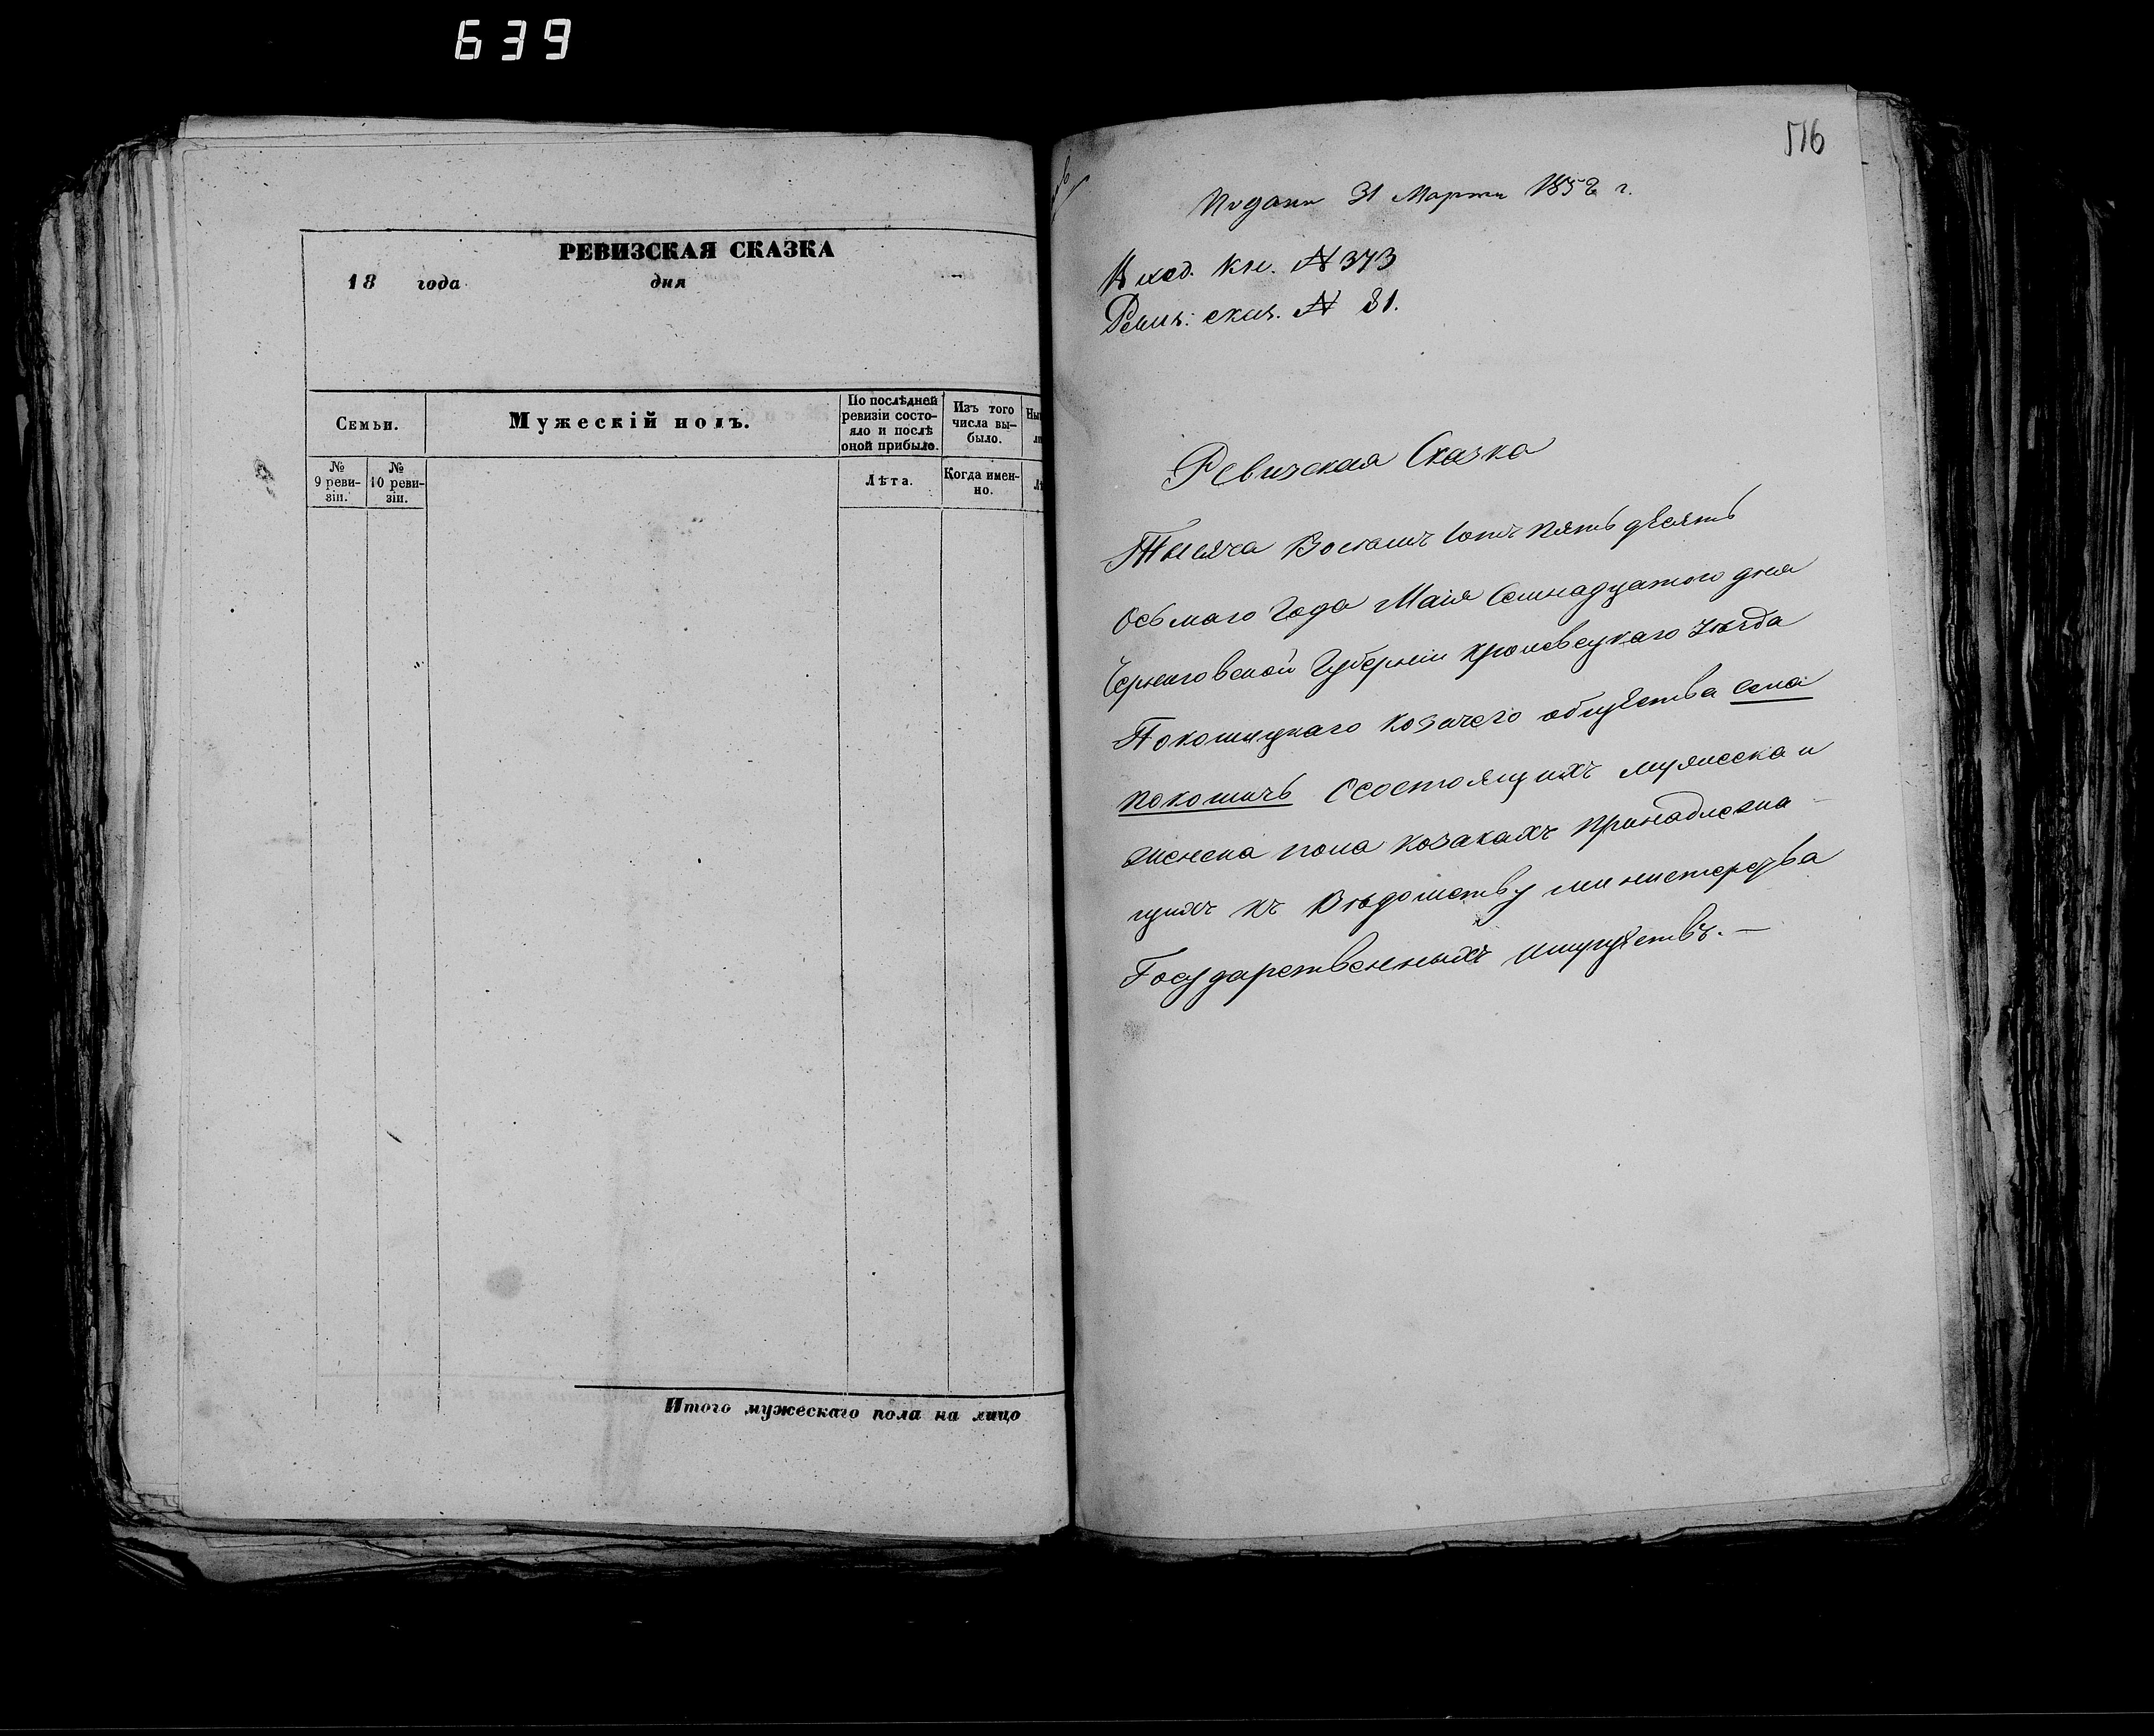 639
РЕВИЗСКАЯ СКАЗКА
18 года дня
Семьи.
Мужескій полъ.
По послѣдней ревизіи состо-
яло и послѣ
оной прибыло.
Изъ того
числа вы-
было.
№
9 реви-
зіи.
№
10 реви-
зіи.
Лѣта.
Когда имен-
но.
Итого мужескаго пола на лицо
516
Подана 31 Марта 1858 г.
Вход. кн. № 373
Ревиз: сказ. № 81.
Ревизская Сказка
Тысяча Восемъ сотъ пятьдесятъ
Осьмаго Года Маія Семнадцатого дня
Черниговской Губерніи Кролевецкаго уѣзда
Покошицкаго козачего общества села
Покошичъ О состоящихъ мужеска и
женска пола козакахъ принадлежа-
щихъ къ Вѣдомству министерства
Государственныхъ имуществъ.—